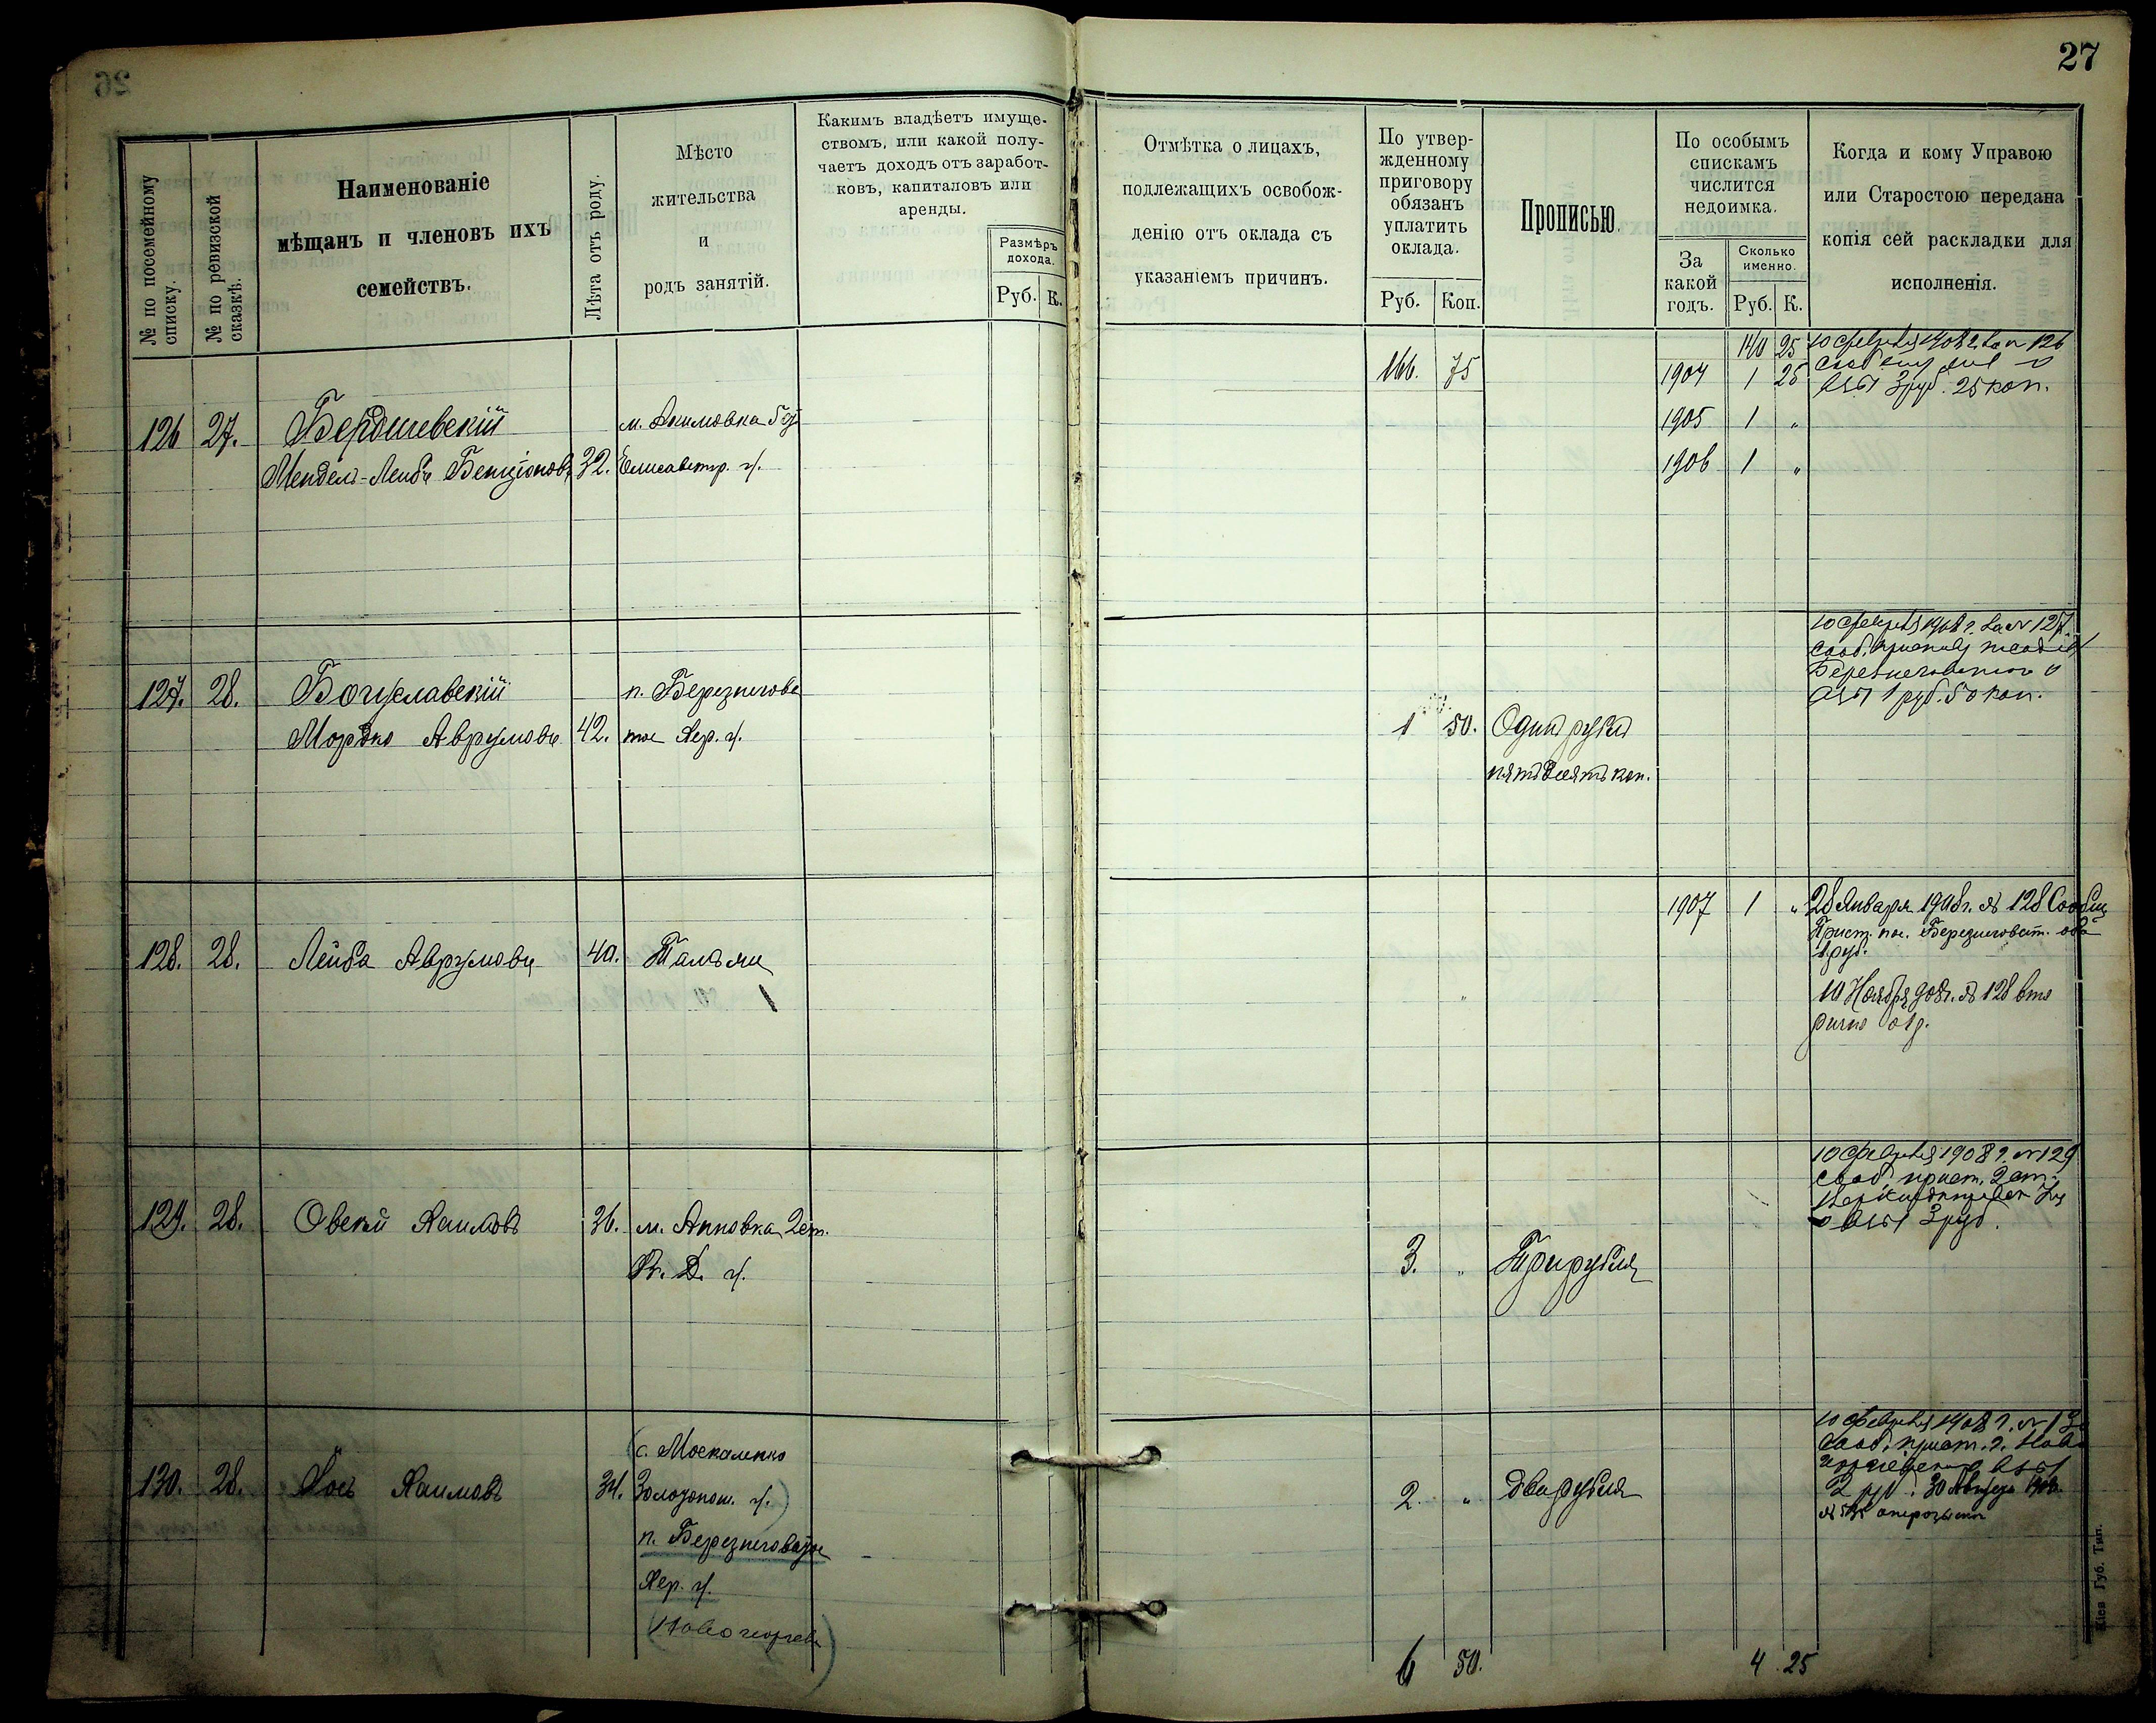 27
№ по посемейному списку.
№ по ревизской сказкѣ.
Наименованіе
мѣщанъ и членовъ ихъ
семействъ.
Лѣта отъ роду.
Мѣсто
жительства
и
родъ занятій.
Какимъ владѣетъ имуще-
ствомъ, или какой полу-
чаетъ доходъ отъ заработ-
ковъ, капиталовъ или
аренды.
Размѣръ
дохода.
Руб. К.
Отмѣтка о лицахъ,
подлежащихъ освобож-
денію отъ оклада съ
указаніемъ причинъ.
По утвер-
жденному
приговору
обязанъ
уплатить
оклада.
Руб. Коп.
Прописью.
По особымъ
спискамъ
числится
недоимка.
За
какой
годъ.
Сколько
именно.
Руб. К.
Когда и кому Управою
или Старостою передана
копія сей раскладки для
исполненія.
166. 75
140 25
1904 1 25
10 февраля 1908 г. за № 126
3 руб. 25 коп.
126 27. Бердичевскій
1905 1 "
Мендель-Лейба Бенціоновъ 32. Елисаветгр. у.
1906 1 "
10 февраля 1908 г. за № 127.
127. 28. Богуславскій п. Березнегова
1 руб. 50 коп.
Мордко Аврумовъ 42. тое Хер. у.
1 50. Одинъ рубль
пятьдесятъ коп.
1907 1 " 28 Января 1908 г. № 128 Сообщ.
Прист. пос. Березнеговат. оба
1 руб.
128. 28. Лейба Аврумовъ 40. Тальяны
10 Ноября 908 г. № 128 вто
рично
10 февраля 1908 г. № 129
сооб. прист. 2 ст.
3 руб.
129. 28. Овсей Хаимовъ 36. м. Анновка 2 ст.
В. Д. у.
3. " Три рубля
10 февраля 1908 г. №
сооб. прист. г. Ново
2 руб. 30 Августа 1908
(с. Москаленко
130. 28. Іось Хаимовъ 34. Золотонош. у.)
2. " Два рубля
п. Березнеговатое
Хер. у.
(Новогеоргіев)
6 50.
4 25
Кіев Губ. Тип.